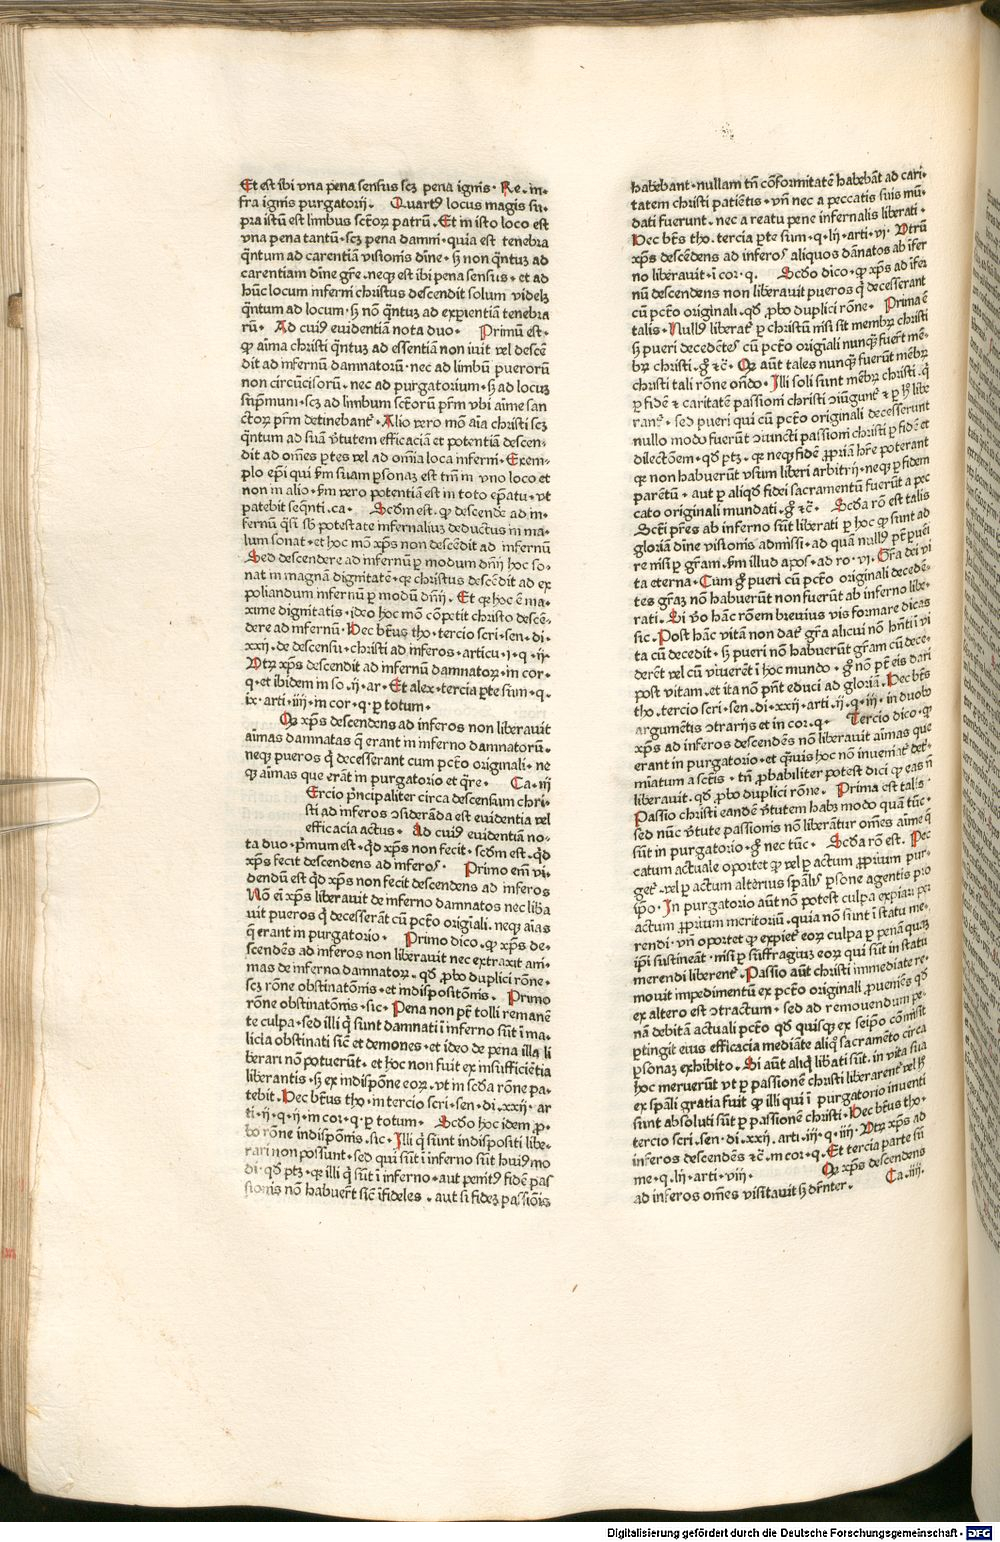 Et est ibi vna pena sensus scꝫ pena ignis· Re· in-
fra ignis purgatorij· Quartꝰ locus magis su-
pra istū est limbus sctōꝝ patrū· Et in isto loco est
vna pena tantū· scꝫ pena damni· quia est tenebra
q̄ntum ad carentiā visionis diīne· sꝫ non q̄ntuꝫ ad
carentiam diīne gr̄e· neqꝫ est ibi pena sensus· et ad
hūc locum inferni christus descendit solum videlꝫ
q̄ntum ad locum· sꝫ nō q̄ntuꝫ ad exꝑientiā tenebra
rū· Ad cuiꝰ euidentiā nota duo· Primū est·
ꝙ aīma christi q̄ntuꝫ ad essentiā non iuit vel descē
dit ad infernū damnatorū· nec ad limbū puerorū
non circūcisorū· nec ad purgatorium· sꝫ ad locuꝫ
supͣmum· scꝫ ad limbum sctōrū pr̄m vbi aīme san
ctoꝝ pr̄m detinebant᷑· Alio vero mō aīa christi scꝫ
q̄ntum ad suā v̄tutem efficaciā et potentiā descen-
dit ad om̄es ꝑtes vel ad om̄ia loca inferni· Exem-
plo ep̄i qui ẜm suam ꝑsonaꝫ est tm̄ in vno loco et
non in alio· ẜm vero potentiā est in toto ep̄atu· vt
patebit seq̄nti· ca· Scd̄m est· ꝙ descende ad in-
fernū q̄si sb̄ potestate infernaliuꝫ deductus in ma-
lum sonat· et hoc mō xp̄s non descēdit ad infernū
Sed descendere ad infernū ꝑ modum dn̄ij hoc so-
nat in magnā dignitatē· qꝛ christus descēdit ad ex
poliandum infernū ꝑ modū dn̄ij· Et qꝛ hoc ē ma-
xime dignitatis· ideo hoc mō cōpetit christo descē-
dere ad infernū· Hec btūs tho· tercio scri· sen· di·
xxij· de descensu· christi ad inferos· articu· ij· q· ij·
Vtꝝ xp̄s descendit ad infernū damnatoꝝ· in cor·
q· et ibidem in so· ij· ar· Et alex· tercia ꝑte sum· q·
ix· arti· iiij· in cor· q· ꝑ totum·
Qꝛ xp̄s descendens ad inferos non liberauit
aīmas damnatas q̄ erant in inferno damnatorū·
neqꝫ pueros q̄ decesserant cum pctō originali· ne
qꝫ aīmas que erāt in purgatorio et q̄re· Ca· iij
Ercio p̄ncipaliter circa descensum chri-
sti ad inferos ꝯsiderāda est euidentia vel
efficacia actus· Ad cuiꝰ euidentiā no-
ta duo· p̄mum est· qd̄ xp̄s non fecit· scd̄m est· qd̄
xp̄s fecit descendens ad inferos· Primo em̄ vi-
dendū est qd̄ xp̄s non fecit descendens ad inferos
Nō ei xp̄s liberauit de inferno damnatos nec liba
uit pueros q̄ decesserāt cū pctō origīali· neqꝫ aīas
q̄ erant in purgatorio· Primo dico· ꝙ xp̄s de-
scendēs ad inferos non liberauit nec extraxit ani-
mas de inferno damnatoꝝ· qd̄ ꝓbo duplici rōne·
scꝫ rōne obstinatōnis· et indispositōnis· Primo
rōne obstinatōnis· sic· Pena non pt̄ tolli remanē
te culpa· sed illi q̄ sunt damnati ī inferno sūt ī ma-
licia obstinati sic̄ et demones· et ideo de pena illa li
berari nō potuerūt· et hoc non fuit ex insufficiētia
liberantis· sꝫ ex indispōne eoꝝ· vt in scd̄a rōne pa-
tebit· Hec btūs tho· in tercio scri· sen· di· xxij· ar
ti· ij· q· ij· in cor· q· ꝑ totum· Scd̄o hoc idem ꝓ-
bo rōne indispōnis· sic· Illi q̄ sunt indispositi libe-
rari non possunt· sed qui sūt ī inferno sūt huiꝰmo
di· qd̄ ptꝫ· qꝛ illi q̄ sūt ī inferno· aut penitꝰ fidē pas
sionis nō habuer̄t sic̄ īfideles· aut si fideꝫ passiōis
habebant· nullam tn̄ cōformitatē habebāt ad cari-
tatem christi patiētis· vn̄ nec a peccatis suis mū-
dati fuerunt· nec a reatu pene infernalis liberati·
Hec btūs tho· tercia ꝑte sum· q· lij· arti· vj· Vtrū
xp̄s descēdens ad inferos aliquos dānatos ab īfer
no liberauit· ī cor· q· Scd̄o dico· ꝙ xp̄s ad īfer
nū descendens non liberauit pueros q̄ decesserant
cū pctō originali· qd̄ ꝓbo duplici rōne· Prima ē
talis· Nullꝰ liberat᷑ ꝑ christū nisi sit membꝝ christi
sꝫ pueri decedētes cū pctō origīali nunqꝫ fuer̄t mē-
bꝝ christi· gͦ ⁊c̄· Qꝫ aūt tales nunqꝫ fuerūt mēbꝝ
christi tali rōne on̄do· Illi soli sunt mēbꝝ christi· q̄
ꝑ fidē ⁊ caritatē passioni christi ꝯiūgunt᷑ ⁊ ꝑ hͦ libe
rant᷑· sed pueri qui cū pctō originali decesserunt
nullo modo fuerūt ꝯiuncti passioni christi ꝑ fidē et
dilectōem· qd̄ ptꝫ· qꝛ neqꝫ fidē ꝓpriā hr̄e poterant
qꝛ non habuerūt vsum liberi arbitrij· neqꝫ ꝑ fidem
parētū· aut ꝑ aliqd̄ fidei sacramentū fuerūt a pec
cato originali mundati· gͦ ⁊c̄· Scd̄a rō est talis
Sctī pr̄es ab inferno sūt liberati ꝑ hoc ꝙ sunt ad
gloriā diīne visionis admissi· ad quā nullꝰ pt̄ ꝑueī
re nisi ꝑ gr̄am· ẜm illud apos· ad ro· vj· Gr̄a dei vi
ta eterna· Cum gͦ pueri cū pctō originali decedē-
tes gr̄aꝫ nō habuerūt non fuerūt ab inferno libe-
rati· Si vͦo hāc rōem breuius vis formare dicas
sic· Post hāc vitā non dat᷑ gr̄a alicui nō hn̄ti ī vi
ta cū decedit· sꝫ pueri nō habuerūt gr̄am cū dece-
derēt vel cū viuerēt ī hoc mundo· gͦ nō pt̄ eis dari
post vitam· et ita nō pn̄t educi ad gloriā· Hec btūs
tho· tercio scri· sen· di· xxij· arti· ij· q· iij· in duobꝰ
argumētis ꝯtrarijs et in cor· q· Tercio dico· ꝙ
xp̄s ad inferos descendēs nō liberauit aīmas que
erant in purgatorio· et q̄uis hoc nō inueniat᷑ det᷑-
minatum a sctīs· tn̄ ꝓbabiliter potest dici ꝙ eas n̄
liberauit· qd̄ ꝓbo duplici rōne· Prima est talis·
Passio christi eandē v̄tutem habꝫ modo quā tūc·
sed nūc v̄tute passionis nō liberātur om̄es aīme q̄
sūt in purgatorio· gͦ nec tūc· Scd̄a rō est· Pec
catum actuale oportet ꝙ vel ꝑ actum ꝓprium pur-
get᷑· vel ꝑ actum alterius spāliꝰ ꝑsone agentis pro
ip̄o· In purgatorio aūt nō potest culpa expiari ꝑ
actum ꝓprium meritoriū· quia nō sunt ī statu me-
rendi· vn̄ oportet ꝙ expiet᷑ eoꝝ culpa ꝑ penā quaꝫ
ip̄i sustineāt· nisi ꝑ suffragiuꝫ eoꝝ qui sūt in statu
merendi liberent᷑· Passio aūt christi immediate re-
mouit impedimentū ex pctō originali ꝓueniēs qd̄
ex altero est ꝯtractum· sed ad remouendum pe-
nā debitā actuali pctō qd̄ quisqꝫ ex seip̄o cōmisit
ꝑtingit eius efficacia mediāte aliq̄ sacramēto circa
ꝑsonaꝫ exhibito· Si aūt aliq̄ libati sūt· in vita sua
hoc meruerūt vt ꝑ passionē christi liberarent᷑ vel hͦ
ex spāli gratia fuit ꝙ illi qui ī purgatorio inuenti
sunt absoluti sūt ꝑ passionē christi· Hec btūs tho·
tercio scri· sen· di· xxij· arti· iij· q· iiij· Vtꝝ xp̄s ad
inferos descendēs ⁊c̄· in cor· q· Et tercia parte sū
me· q· lij· arti· viij· Qꝛ xp̄s descendens
ad inferos om̄es visitauit sꝫ dr̄nter· Ca· iiij·
Digitalisierung gefördert durch die Deutsche Forschungsgemeinschaft - DFG